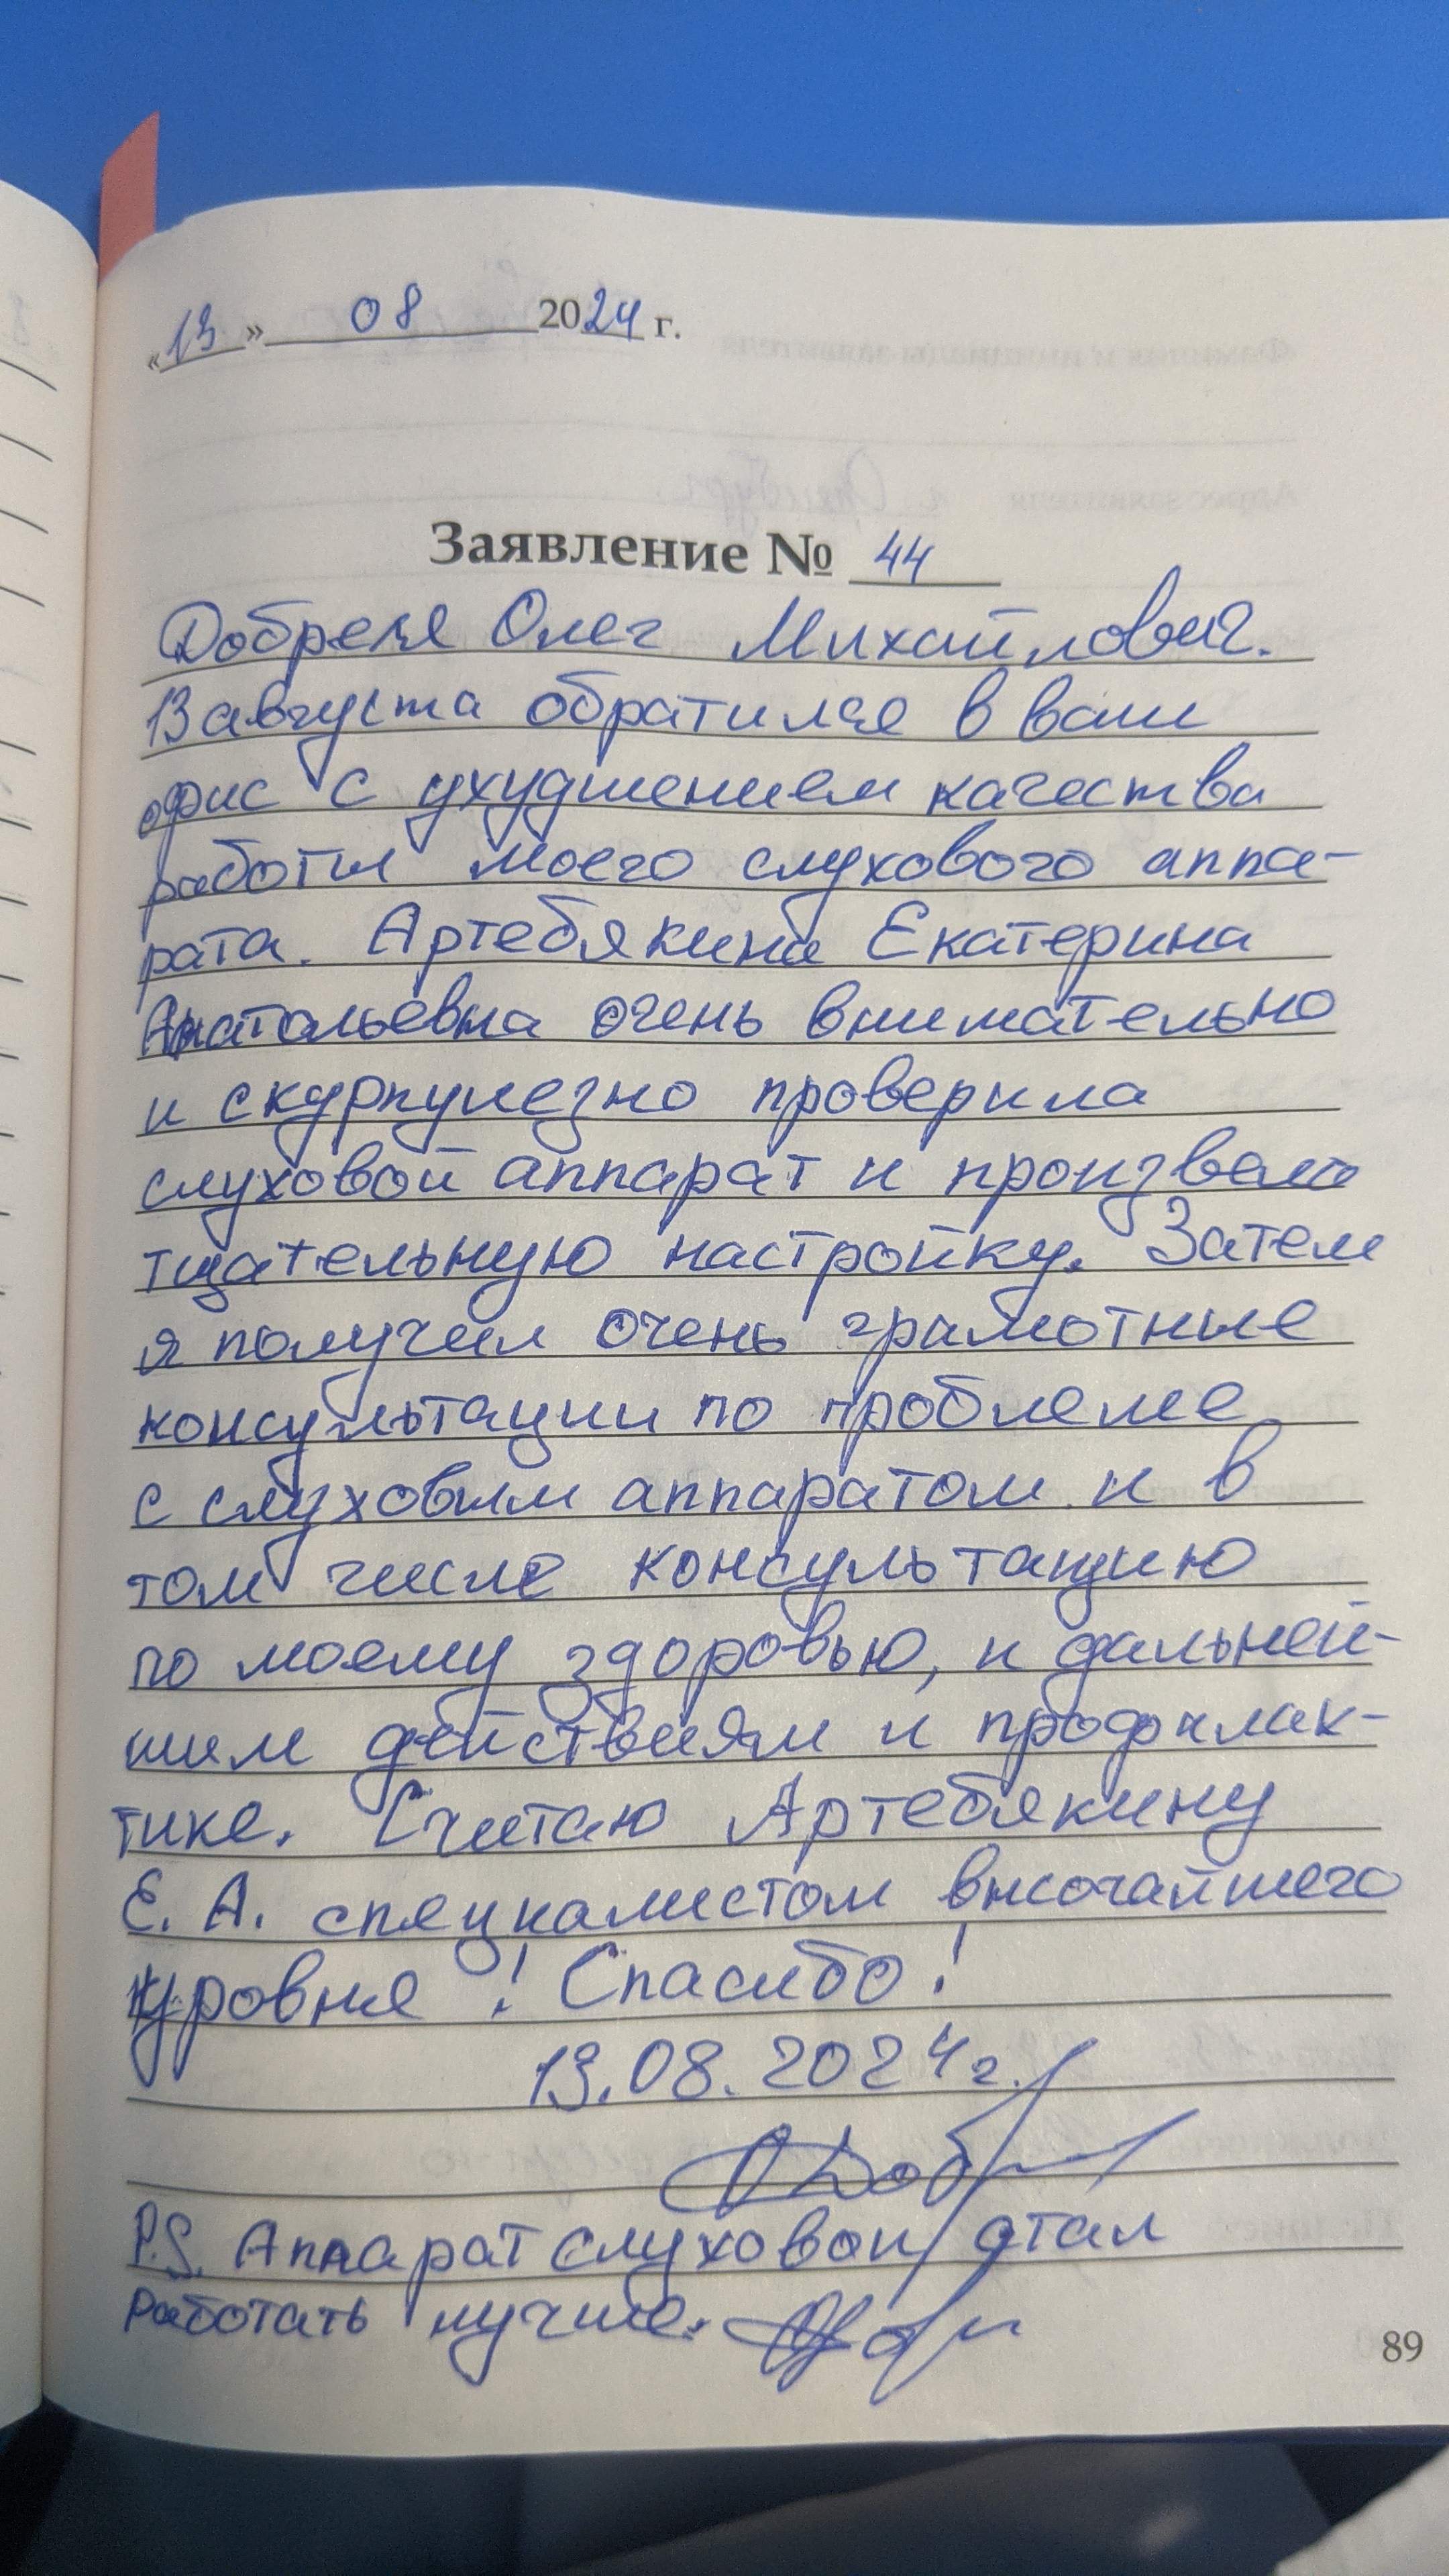 «13» 08 2024 г.
Заявление № 44
Добреля Олег Михайлович.
13 августа обратился в ваш
офис с ухудшением качества
работы моего слухового аппа-
рата. Артебякина Екатерина
Анатольевна очень внимательно
и скурпулезно проверила
слуховой аппарат и произвела
тщательную настройку. Затем
я получил очень грамотные
консультации по проблеме
с слуховым аппаратом и в
том числе консультацию
по моему здоровью, и дальней-
шим действиям и профилак-
тике. Считаю Артебякину
Е. А. специалистом высочайшего
уровня! Спасибо!
13.08.2024г.
P.S. Аппарат слуховой стал
работать лучше.
89